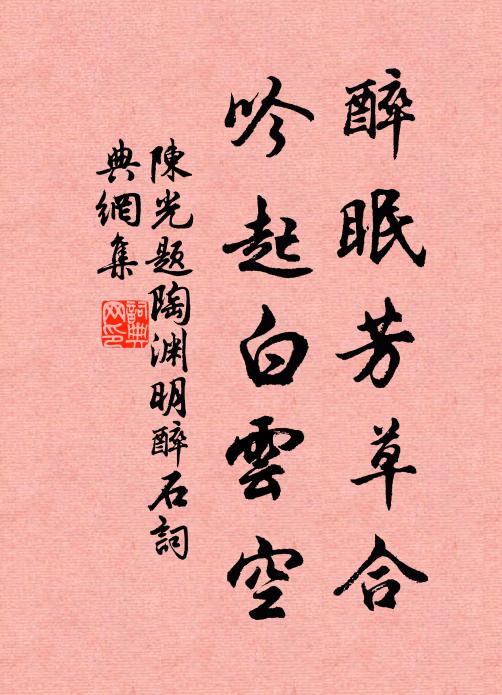 醉眠芳草合
吟起白雲空
陳光題陶渊明醉石詞
典網集
詞典
网印